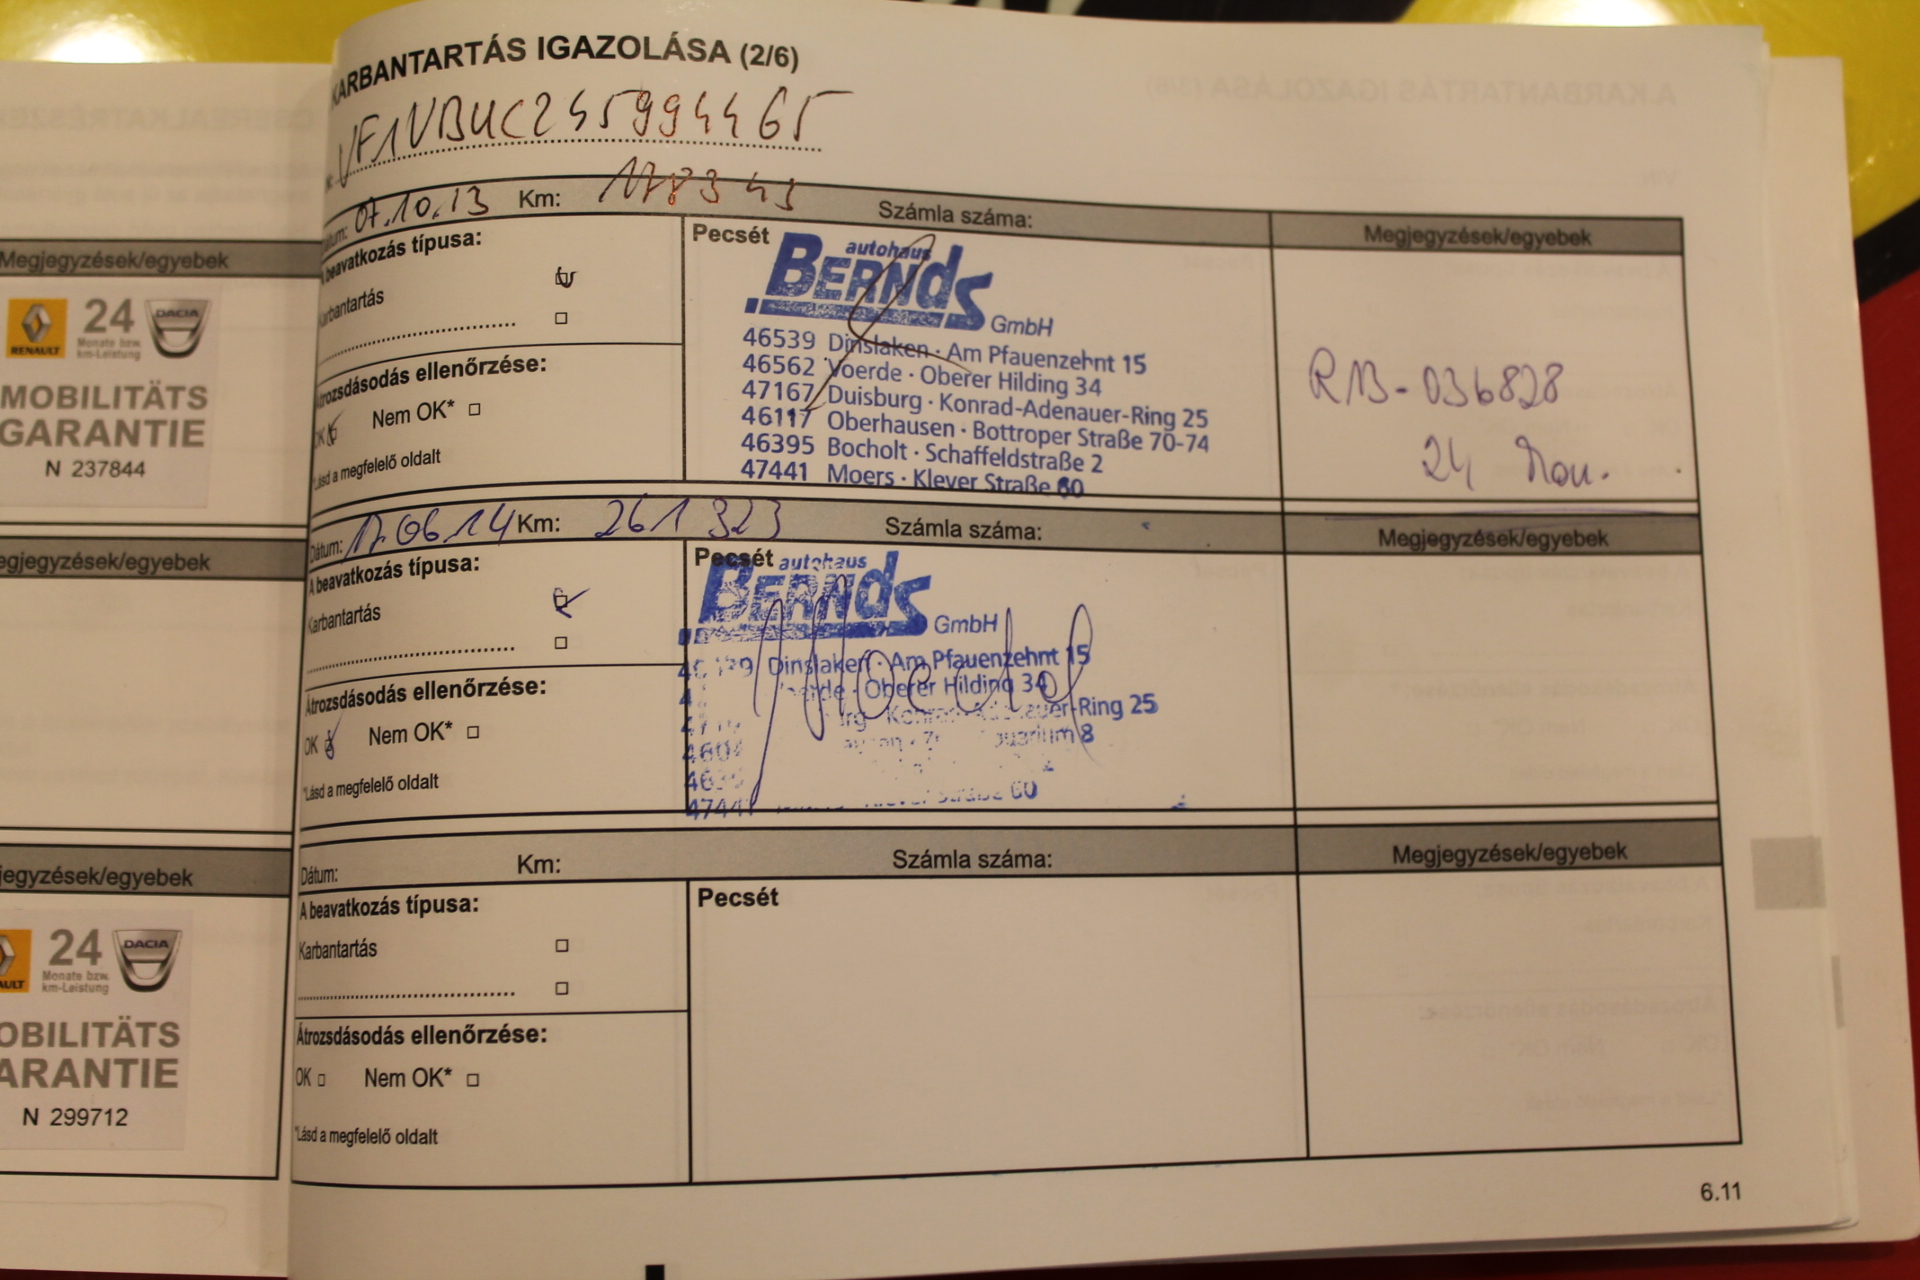 Megjegyzések/egyebek
RENAULT
24
Monate bzw.
km-Leistung
DACIA
MOBILITÄTS
GARANTIE
N 237844
egjegyzések/egyebek
jegyzések/egyebek
AULT
24
Monate bzw.
km-Leistung
DACIA
OBILITÄTS
ARANTIE
N 299712
KARBANTARTÁS IGAZOLÁSA (2/6)
VF1VBUC245994465
Dátum: 07.10.13 Km: 178343 Számla száma: Megjegyzések/egyebek
A beavatkozás típusa:
Karbantartás
Átrozsdásodás ellenőrzése:
OK Nem OK*
*Lásd a megfelelő oldalt
Pecsét
autohaus
BERNDS
GmbH
46539 Dinslaken · Am Pfauenzehnt 15
46562 Voerde · Oberer Hilding 34
47167 Duisburg · Konrad-Adenauer-Ring 25
46117 Oberhausen · Bottroper Straße 70-74
46395 Bocholt · Schaffeldstraße 2
47441 Moers · Klever Straße 60
RNB-036828
24 Mon.
Dátum: 17.06.14 Km: 261 323 Számla száma: Megjegyzések/egyebek
A beavatkozás típusa:
Karbantartás
Átrozsdásodás ellenőrzése:
OK Nem OK*
*Lásd a megfelelő oldalt
Pecsét
autohaus
BERNDS
GmbH
Dinslaken · Am Pfauenzehnt 15
Oberer Hilding 34
-Ring 25
8
47441 Klever Straße 60
Dátum: Km: Számla száma: Megjegyzések/egyebek
A beavatkozás típusa:
Karbantartás
Átrozsdásodás ellenőrzése:
OK Nem OK*
*Lásd a megfelelő oldalt
Pecsét
6.11